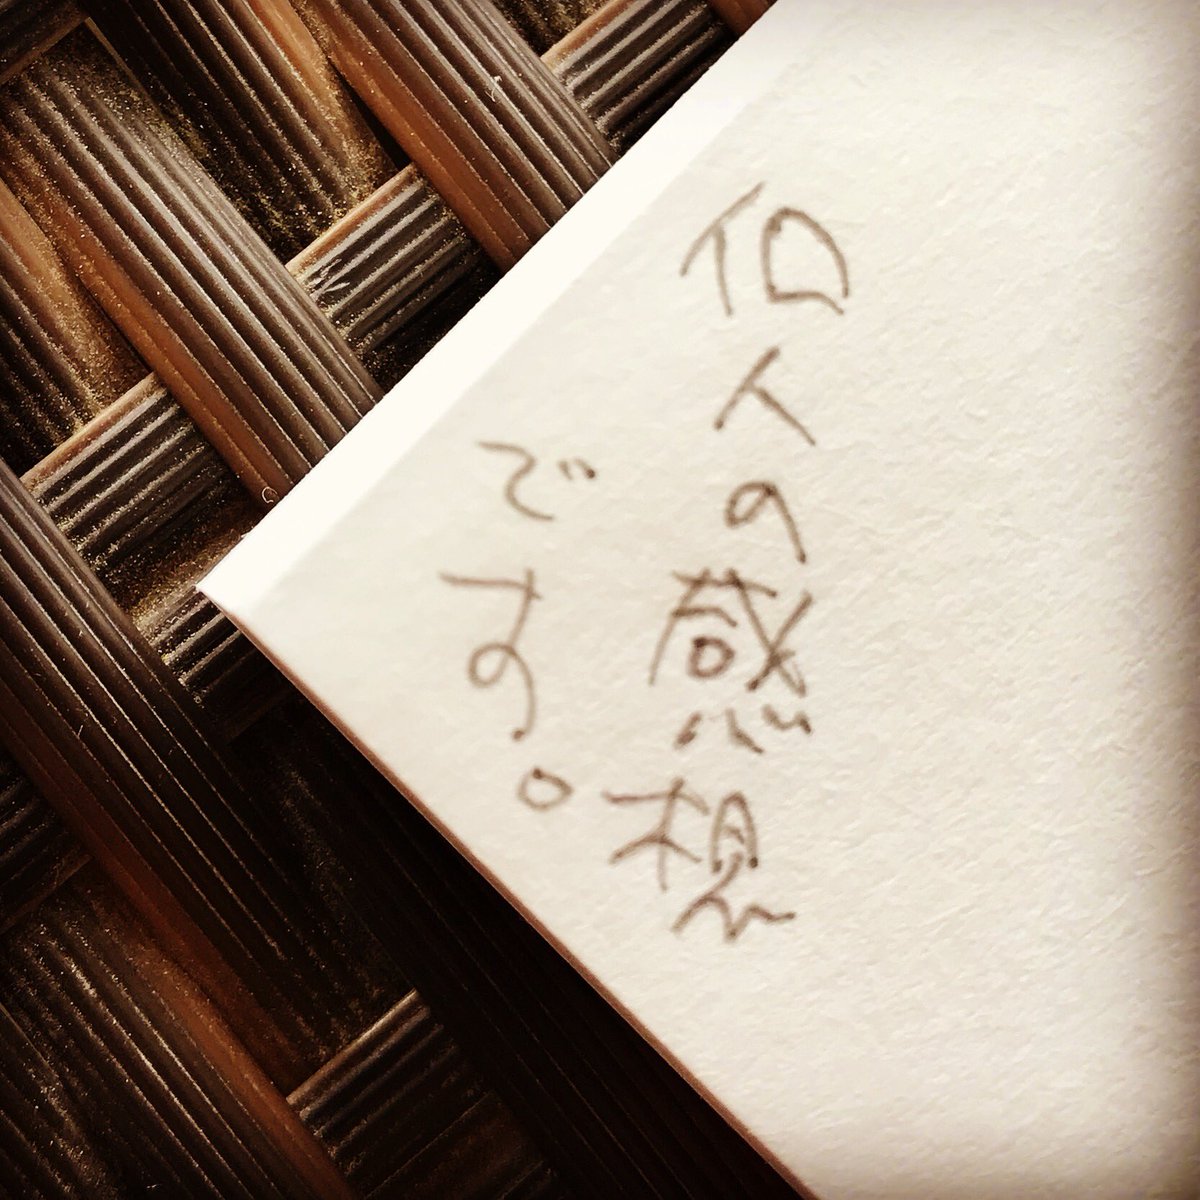 個人の感想
です。